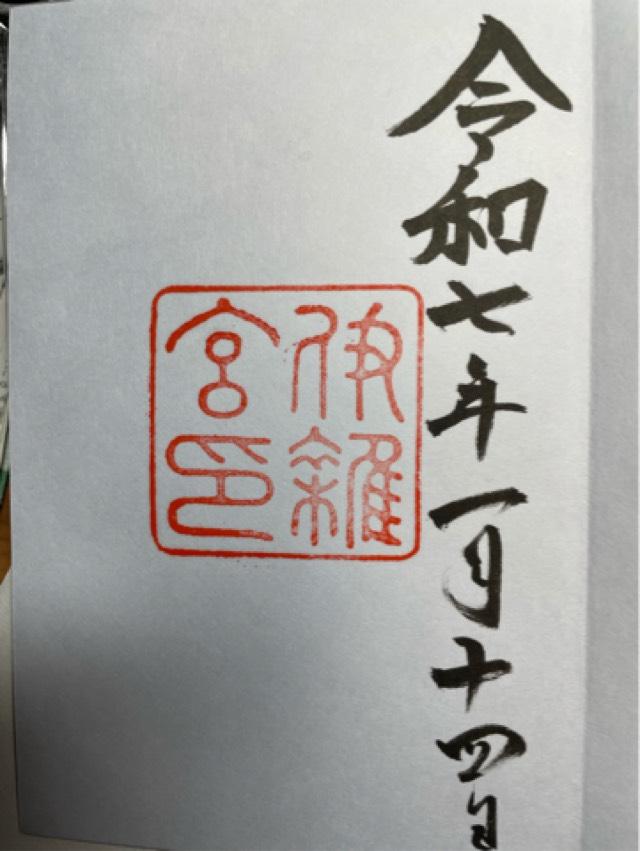 令和七年一月十四日
伊雜
宮印